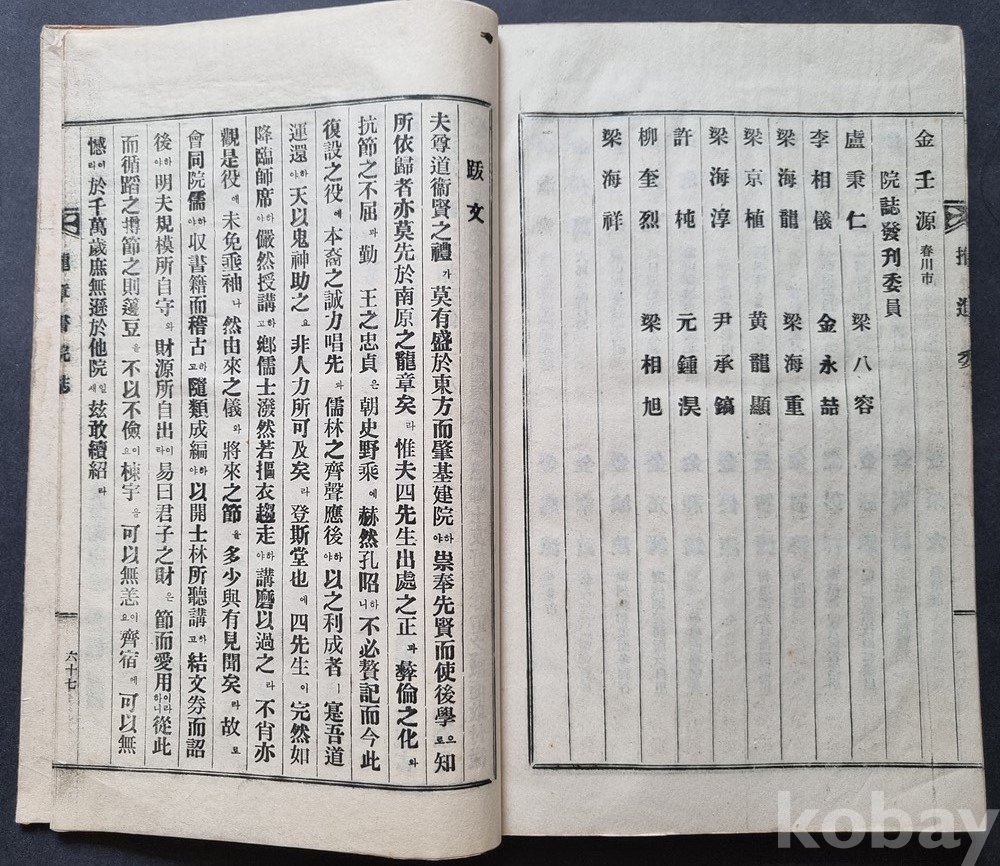 金壬源 春川市
院誌發刊委員
盧秉仁 梁八容
李相儀 金永喆
梁海龍 梁海重
梁京植 黃龍顯
梁海淳 尹承鎬
許炖 元鍾淏
柳奎烈 梁相旭
梁海祥
跋文
夫尊道衛賢之禮가莫有盛於東方而肇基建院하야崇奉先賢而使後學으로知
所依歸者亦莫先於南原之龍章矣라惟夫四先生出處之正과彝倫之化와
抗節之不屈과勤 王之忠貞은朝史野乘에赫然孔昭하니不必贅記而今此
復設之役에本裔之誠力唱先과儒林之齊聲應後하야以之利成者ㅣ寔吾道
運還하야天以鬼神助之요非人力所可及矣라登斯堂也에四先生이完然如
降臨師席하야儼然授講하고鄉儒士潑然若摳衣趨走하야講磨以過之라不肖亦
觀是役에未免乖袖나然由來之儀와將來之節을多少與有見聞矣라故로
會同院儒하야収書籍而稽古하고隨類成編하야以開士林所聽講하고結文券而詔
後하야明夫規模所自守와財源所自出이라易曰君子之財은節而愛用이라하니從此
而循蹈之撙節之則籩豆을不以不儉이요棟宇을可以無恙이요齊宿에可以無
憾이리於千萬歲庶無遜於他院일새玆敢續紹라
龍章書院誌
六十七